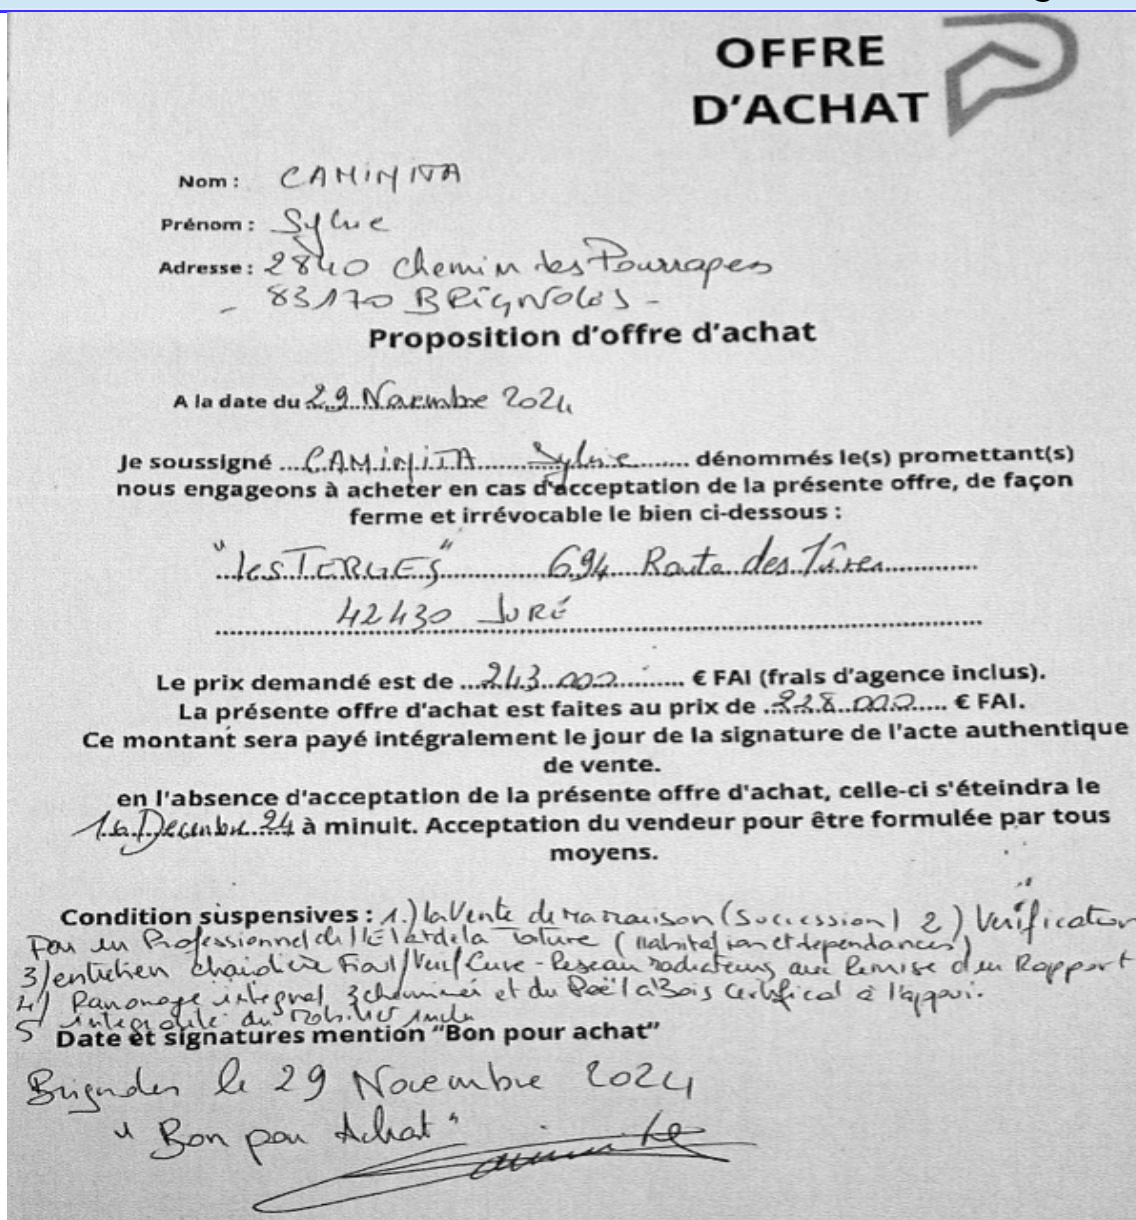 OFFRE
D'ACHAT
Nom : CAMINITA
Prénom : Sylvie
Adresse : 2840 chemin des Pourraques
- 83170 BRIGNOLES -
Proposition d'offre d'achat
A la date du 29 Novembre 2024
Je soussigné ....CAMINITA.......Sylvie........ dénommés le(s) promettant(s)
nous engageons à acheter en cas d'acceptation de la présente offre, de façon
ferme et irrévocable le bien ci-dessous :
"les TERGES" 694 Route des
42430 JURÉ
Le prix demandé est de ...243.000........ € FAI (frais d'agence inclus).
La présente offre d'achat est faites au prix de .228.000..... € FAI.
Ce montant sera payé intégralement le jour de la signature de l'acte authentique
de vente.
en l'absence d'acceptation de la présente offre d'achat, celle-ci s'éteindra le
Décembre 24 à minuit. Acceptation du vendeur pour être formulée par tous
moyens.
Condition suspensives : 1.) la Vente de ma maison (Succession) 2) Vérification
Par un Professionnel de l'Etat de la toiture (habitation et dependances)
3) entretien chaudière Fioul/ /Cuve - Reseau radiateurs avec Remise d'un Rapport
4) Ramonage integral 3 cheminées et du Poël à Bois Certificat à l'appui.
5 integralité du mobilier inclu
Date et signatures mention "Bon pour achat"
Brignoles le 29 Novembre 2024
"Bon pour Achat"